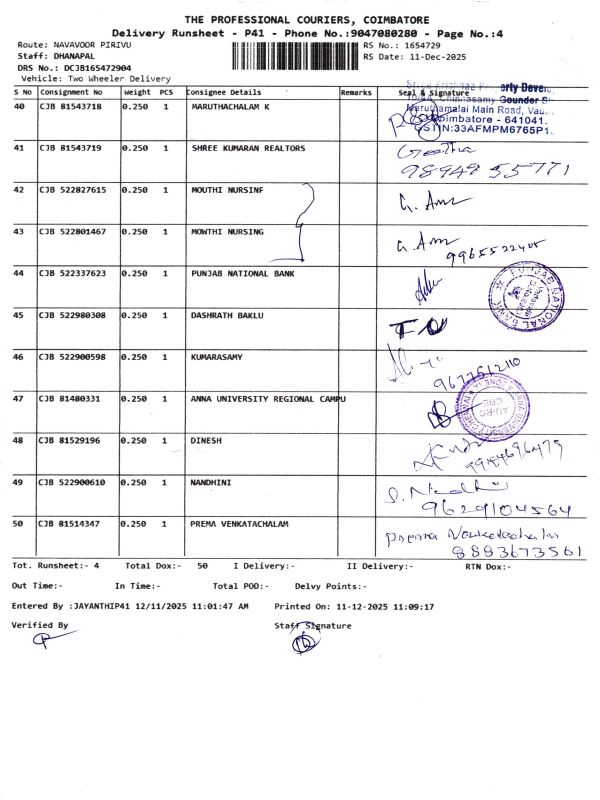 THE PROFESSIONAL COURIERS, COIMBATORE
Delivery Runsheet - P41 - Phone No.:9047080280 - Page No.:4
Route: NAVAVOOR PIRIVU
RS No.: 1654729
Staff: DHANAPAL
RS Date: 11-Dec-2025
DRS No.: DCJB165472904
Vehicle: Two Wheeler Delivery
S No Consignment No Weight PCS Consignee Details Remarks Seal & Signature
40 CJB 81543718 0.250 1 MARUTHACHALAM K
erty Develo
Gounder S
Maruthamalai Main Road, Vad
Coimbatore - 641041.
GSTIN:33AFMPM6765P1
41 CJB 81543719 0.250 1 SHREE KUMARAN REALTORS Geetha
98949 55771
42 CJB 522827615 0.250 1 MOUTHI NURSINF
43 CJB 522801467 0.250 1 MOWTHI NURSING
44 CJB 522337623 0.250 1 PUNJAB NATIONAL BANK
PUNJAB NATIONAL BANK
45 CJB 522980308 0.250 1 DASHRATH BAKLU
46 CJB 522900598 0.250 1 KUMARASAMY
47 CJB 81480331 0.250 1 ANNA UNIVERSITY REGIONAL CAMPU
48 CJB 81529196 0.250 1 DINESH
49 CJB 522900610 0.250 1 NANDHINI
9629104564
50 CJB 81514347 0.250 1 PREMA VENKATACHALAM Prema Venketachalm
8883673561
Tot. Runsheet:- 4 Total Dox:- 50 I Delivery:- II Delivery:- RTN Dox:-
Out Time:- In Time:- Total POD:- Delvy Points:-
Entered By :JAYANTHIP41 12/11/2025 11:01:47 AM Printed On: 11-12-2025 11:09:17
Verified By Staff Signature